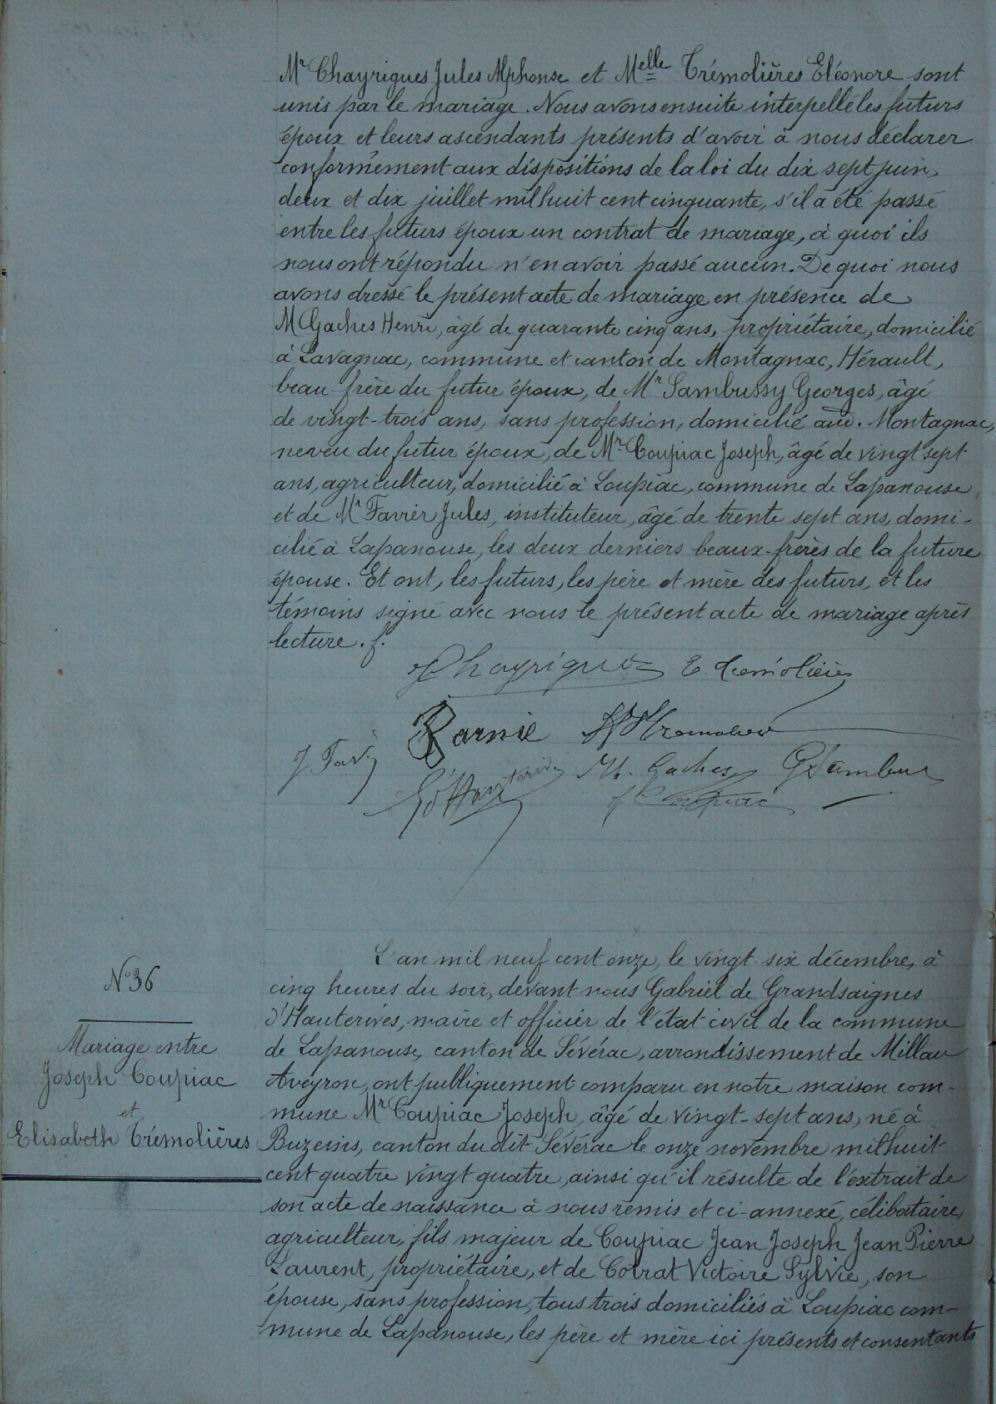 Mr Chayrigues Jules Alphonse et Melle Trémolières Eléonore sont
unis par le mariage. Nous avons ensuite interpellé les futurs
époux et leurs ascendants présents d'avoir à nous déclarer
conformément aux dispositions de la loi du dix sept juin,
deux et dix juillet mil huit cent cinquante, s'il a été passé
entre les futurs époux un contrat de mariage, à quoi ils
nous ont répondu n'en avoir passé aucun. De quoi nous
avons dressé le présent acte de mariage en présence de
M Gaches Henri, âgé de quarante cinq ans, propriétaire, domicilié
à Lavagnac, commune et canton de Montagnac, Hérault,
beau-frère du futur époux, de Mr Sambussy Georges, âgé
de vingt-trois ans, sans profession, domicilié aud. Montagnac,
neveu du futur époux, de Mr Coupiac Joseph, âgé de vingt sept
ans, agriculteur, domicilié à Loupiac, commune de Lapanouse,
et de Mr Favier Jules, instituteur, âgé de trente sept ans, domi-
cilié à Lapanouse, les deux derniers beaux-frères de la future
épouse. Et ont, les futurs, les père et mère des futurs, et les
témoins signé avec nous le présent acte de mariage après
lecture. f.
Chayrigues E. Tremolières
Barnié Tremolières
J. Favier
H. Gaches G Sambuss
J Coupiac
L'an mil neuf cent onze, le vingt six décembre, à
N° 36
cinq heures du soir, devant nous Gabriel de Grandsaignes
d'Hauterives, maire et officier de l'état civil de la commune
Mariage entre
de Lapanouse, canton de Sévérac, arrondissement de Millau
Joseph Coupiac
Aveyron, ont publiquement comparu en notre maison com-
et
mune Mr Coupiac Joseph, âgé de vingt-sept ans, né à
Elisabeth Trémolières
Buzeins, canton dudit Sévérac le onze novembre mil huit
cent quatre vingt quatre, ainsi qu'il résulte de l'extrait de
son acte de naissance à nous remis et ci-annexé, célibataire,
agriculteur, fils majeur de Coupiac Jean Joseph Jean Pierre
Laurent, propriétaire, et de Cotrat Victoire Sylvie, son
épouse, sans profession, tous trois domiciliés à Loupiac com-
mune de Lapanouse, les père et mère ici présents et consentants